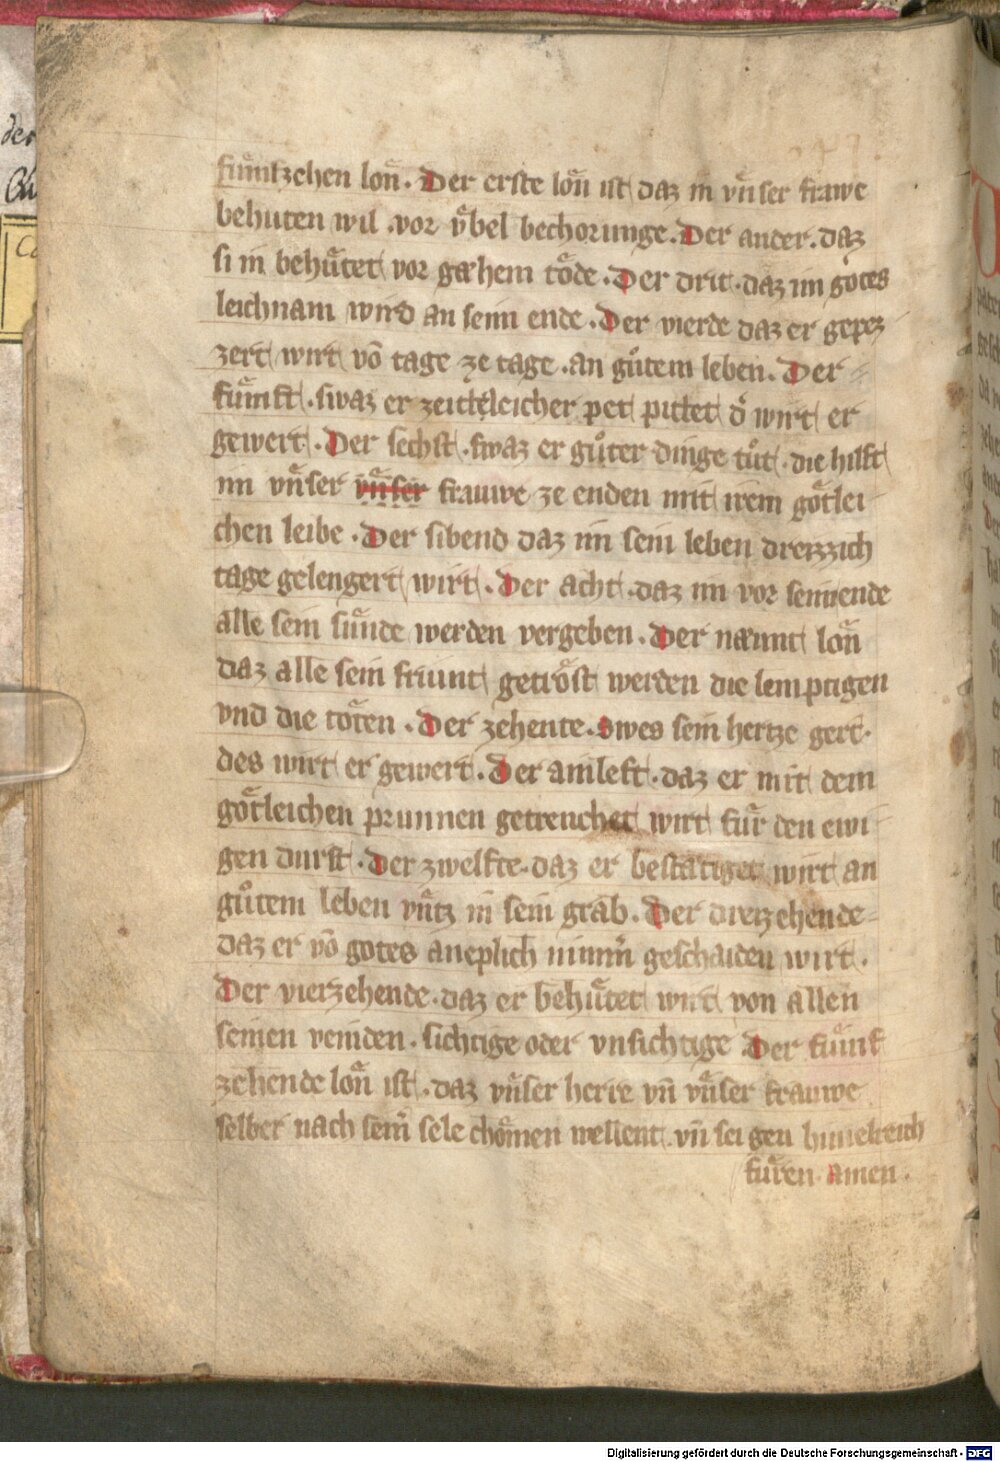 fuͤnfzehen lon̄. Der erste lon̄ ist daz in vn̄ser frawe
behuten wil .vor vͤbel bechorunge. Der ander. daz
si in behuͤtet vor gæhem toͤde. Der drit. daz im gotes
leichnam wird an seim ende. Der vierde daz er gepez
zert wirt vō tage ze tage .an guͦtem leben. Der
fuͤnft. swaz er zeitleicher pet pittet dͦ wirt er
gewert. Der sechst. swaz er guͦter dinge tuͦt. die hilft
im vn̄ser vn̄ser frauwe ze enden mit irem goͤtlei
chen leibe. Der sibend daz im sein leben dreizzich
tage gelengert wirt. Der acht. daz im vor seim ende
alle sein suͤnde werden vergeben. Der næunt lon̄
daz alle sein friunt getroͤst werden die lemptigen
vnd die toten. Der zehente. Swes sein hertze gert.
des wirt er gewert. Der ainleft. daz er mit dem
goͤtleichen prunnen getrenchet wirt fuͤr den ewi
gen durst. Der zwelfte. daz er bestaͤtiget wirt an
guͦtem leben vn̄tz in sein grab. Der dreizehende
daz er vō gotes aneplich nimm̄ geschaiden wirt.
Der vierzehende. daz er behuͤtet wirt von allen
seinen veinden. sichtige oder vnsichtige Der fuͤnf
zehende lon̄ ist. daz vn̄ser herre vn̄ vn̄ser frauwe
selber nach sein̄ sele choͤmen wellent. vn̄ sei gen himelreich
fuͤren. Amen.
Digitalisierung gefördert durch die Deutsche Forschungsgemeinschaft - DFG